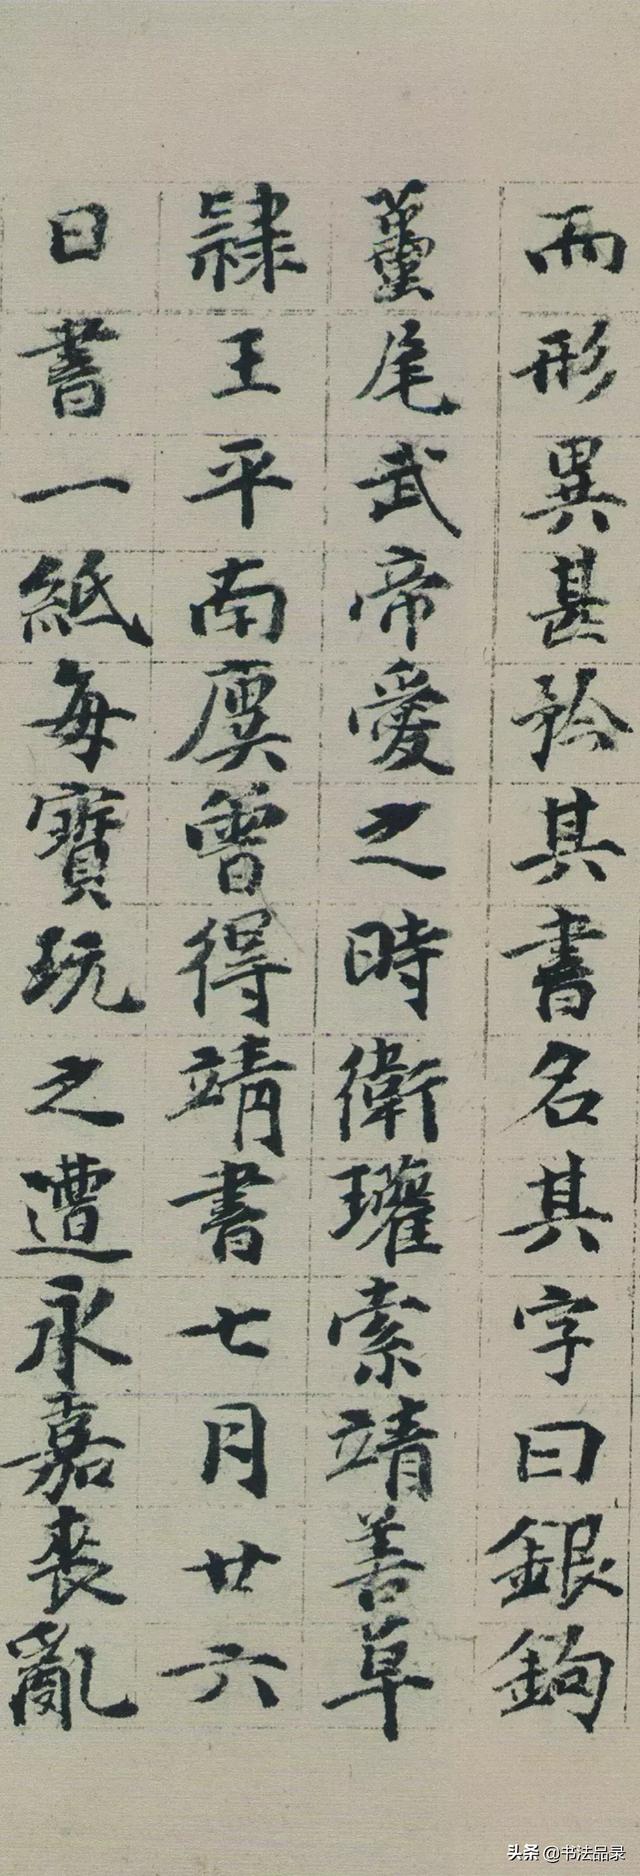 而形異甚矜其書名其字曰銀鉤
蠆尾武帝愛之時衛瓘索靖善草
隸王平南廙曾得靖書七月廿六
日書一紙每寶玩之遭永嘉喪亂
头条 @书法品录